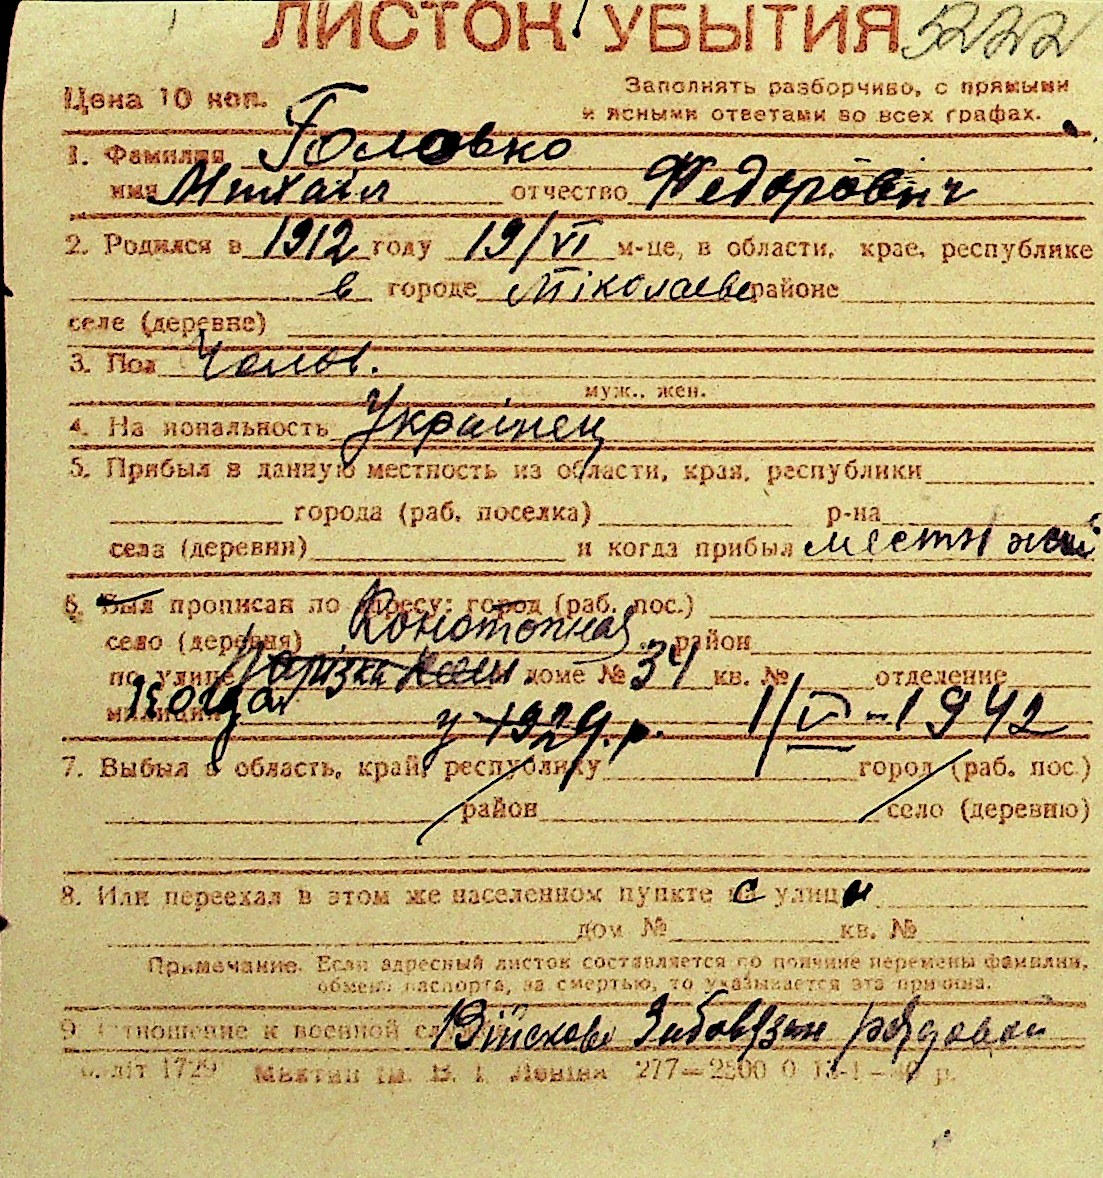 ЛИСТОК УБЫТИЯ 5222
Цена 10 коп.
Заполнять разборчиво, с прямыми
и ясными ответами во всех графах.
1. Фамилия Головко
имя Михаіл отчество Федоровіч
2. Родился в 1912 году 19/VI м-це, в области, крае, республике
в городе Ніколаеве районе
селе (деревне)
3. Пол Чолов.
муж., жен.
4. Национальность Украінец
5. Прибыл в данную местность из области, края, республики
города (раб. поселка) р-на
села (деревни) и когда прибыл местн жи
6. Был прописан по адресу: город (раб. пос.)
село (деревня) Конотопная район
по улице доме № 34 кв. № отделение
милиции у 1929 р. 1/V-1942
7. Выбыл в область, край, республику город (раб. пос.)
район село (деревню)
8. Или переехал в этом же населенном пункте с улицы
дом № кв. №
Примечание. Если адресный листок составляется по причине перемены фамилии,
обмена паспорта, за смертью, то указывается эта причина.
9. Отношение к военной службе Військово Зобовязан рядовой
літ 1729 ім. В. І. Леніна 277—2500 0